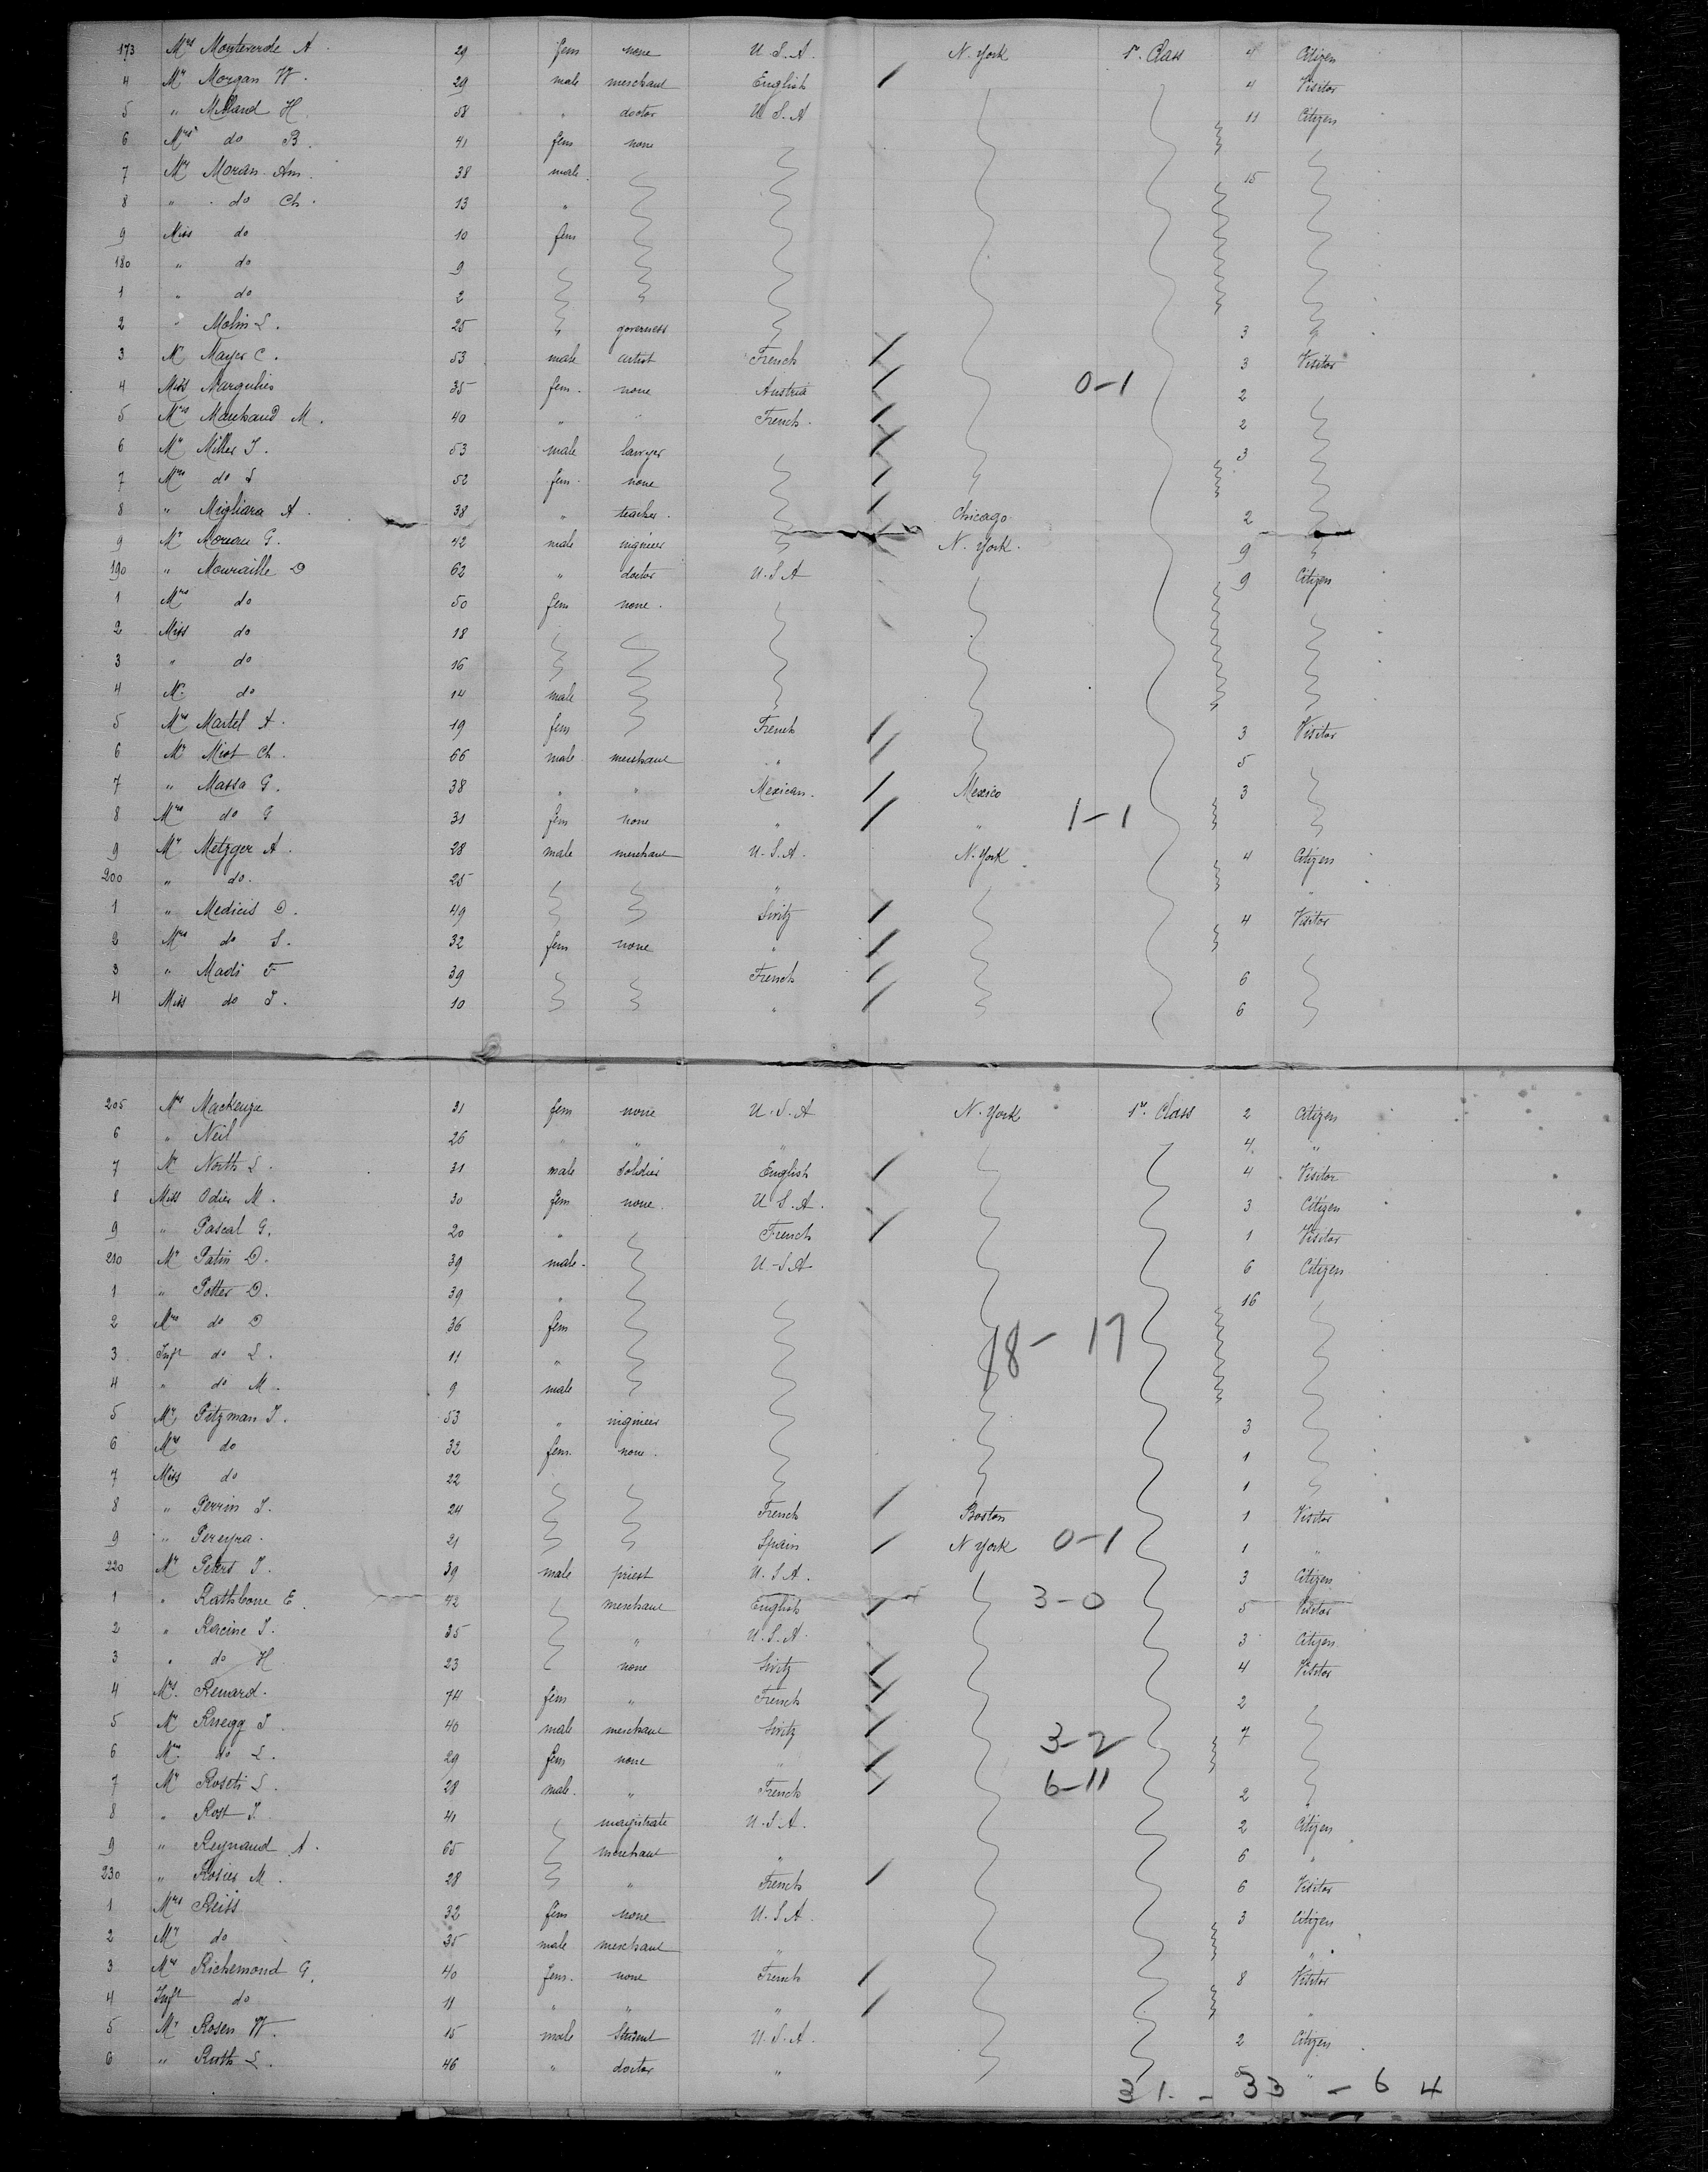 173 Mrs Monteverde A. 29 fem none U.S.A. N. York 1r. Class 4 Citizen
4 Mr Morgan W. 29 male merchant English 4 Visitor
5 " H. 58 " doctor U.S.A 11 Citizen
6 Mrs do B. 41 fem none
7 Mr Moran Am. 38 male 15
8 " do Ch. 13 "
9 Miss do 10 fem
180 " do 9
1 " do 2
2 " Molin L. 25 governess 3
3 Mr Mayer C. 53 male artist French 3 Visitor
4 Miss Margulies 35 fem. none Austria 0-1 2
5 Mrs Marchand M. 40 " " French. 2
6 Mr Miller J. 53 male lawyer 3
7 Mrs do S 52 fem. none
8 " Migliara A. 38 " teacher. Chicago 2
9 Mr Moreau G. 42 male ingineer N. York. 9
190 " Mouraille D 62 " doctor U.S.A 9 Citizen
1 Mrs do 50 fem none.
2 Miss do 18
3 " do 16
4 Mr. do 14 male
5 Mrs Martel A. 19 fem French 3 Visitor
6 Mr Miot Ch. 66 male merchant " 5
7 " Massa G. 38 " " Mexican. Mexico 3
8 Mrs do G 31 fem none " " 1-1
9 Mr Metzger A. 28 male merchant U.S.A. N. York 4 Citizen
200 " do. 25 " "
1 " Medicis D. 49 Switz 4 Visitor
2 Mrs do S. 32 fem none "
3 " Madi F 39 French 6
4 Miss do J. 10 " 6
205 Mrs Mackenzie 31 fem none U.S.A N. York 1r. Class 2 Citizen
6 " Neil 26 " " " 4 "
7 Mr North L. 31 male Soldier English 4 Visitor
8 Miss Odier M. 30 fem none. U.S.A. 3 Citizen
9 " Pascal G. 20 " French 1 Visitor
210 Mr Patin D. 39 male. U.S.A 6 Citizen
1 " Potter D. 39 " 16
2 Mrs do D 36 fem 18-17
3 Inft do L. 11 "
4 " do M. 9 male
5 Mr Pitzman J. 53 " ingineer 3
6 Mrs do 32 fem. none. 1
7 Miss do 22 1
8 " Perrin J. 24 French Boston 1 Visitor
9 " Pereyra. 21 Spain N York 0-1 1 "
220 Mr Peters J. 39 male priest U.S.A. 3 Citizen
1 " Rathbone E. 42 merchant English 3-0 5 Visitor
2 " Racine J. 35 " U.S.A. 3 Citizen
3 " do H 23 none Switz 4 Visitor
4 Mrs. Renard. 74 fem " French 2
5 Mr Ruegg J. 40 male merchant Switz 3-2 7
6 Mrs do L. 29 fem none "
7 Mr Roseti L. 28 male. " French 6-11 2
8 " Rost J. 41 magistrate U.S.A. 2 Citizen
9 " Reynaud A. 65 merchant " 6 "
230 " Rosier M. 28 " French 6 Visitor
1 Mrs Reiss 32 fem none U.S.A. 3 Citizen
2 Mr do 35 male merchant " "
3 Mrs Richemond G. 40 fem. none French 8 Visitor
4 Inft do 11 " " " "
5 Mr Rosen W. 15 male Student U.S.A. 2 Citizen
6 " Ruth L. 46 " doctor " 5 "
31. - 33 - 64